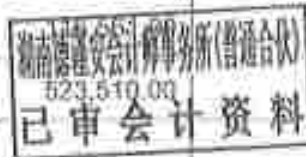 湖南德謹安会计师事务所(普通合伙)
523,510.00
已审会计资料